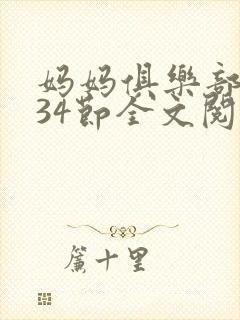 妈妈俱樂部
34節全文閱
簾十里